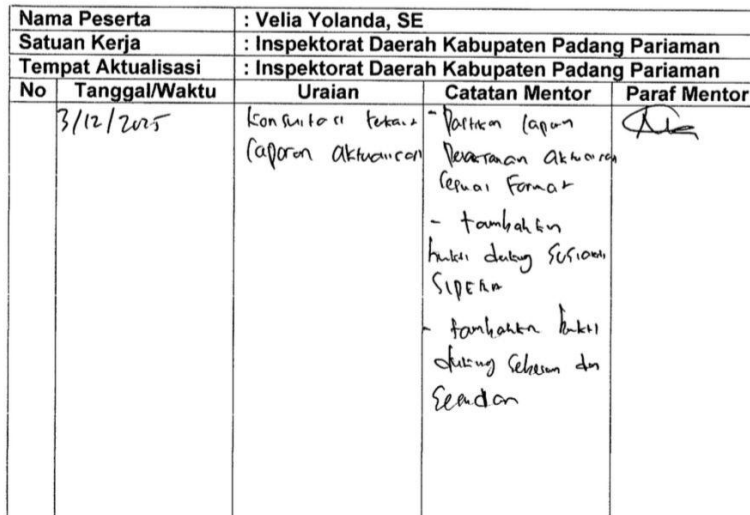 Nama Peserta : Velia Yolanda, SE
Satuan Kerja : Inspektorat Daerah Kabupaten Padang Pariaman
Tempat Aktualisasi : Inspektorat Daerah Kabupaten Padang Pariaman
No Tanggal/Waktu Uraian Catatan Mentor Paraf Mentor
3/12/2025
Konsultasi terkait
Laporan aktualisasi
- Pastikan lapran
aktualisasi
sesuai Format
- tambahkan
bukti dukung
SIPERA
- tambahkan bukti
dukung sebelum dan